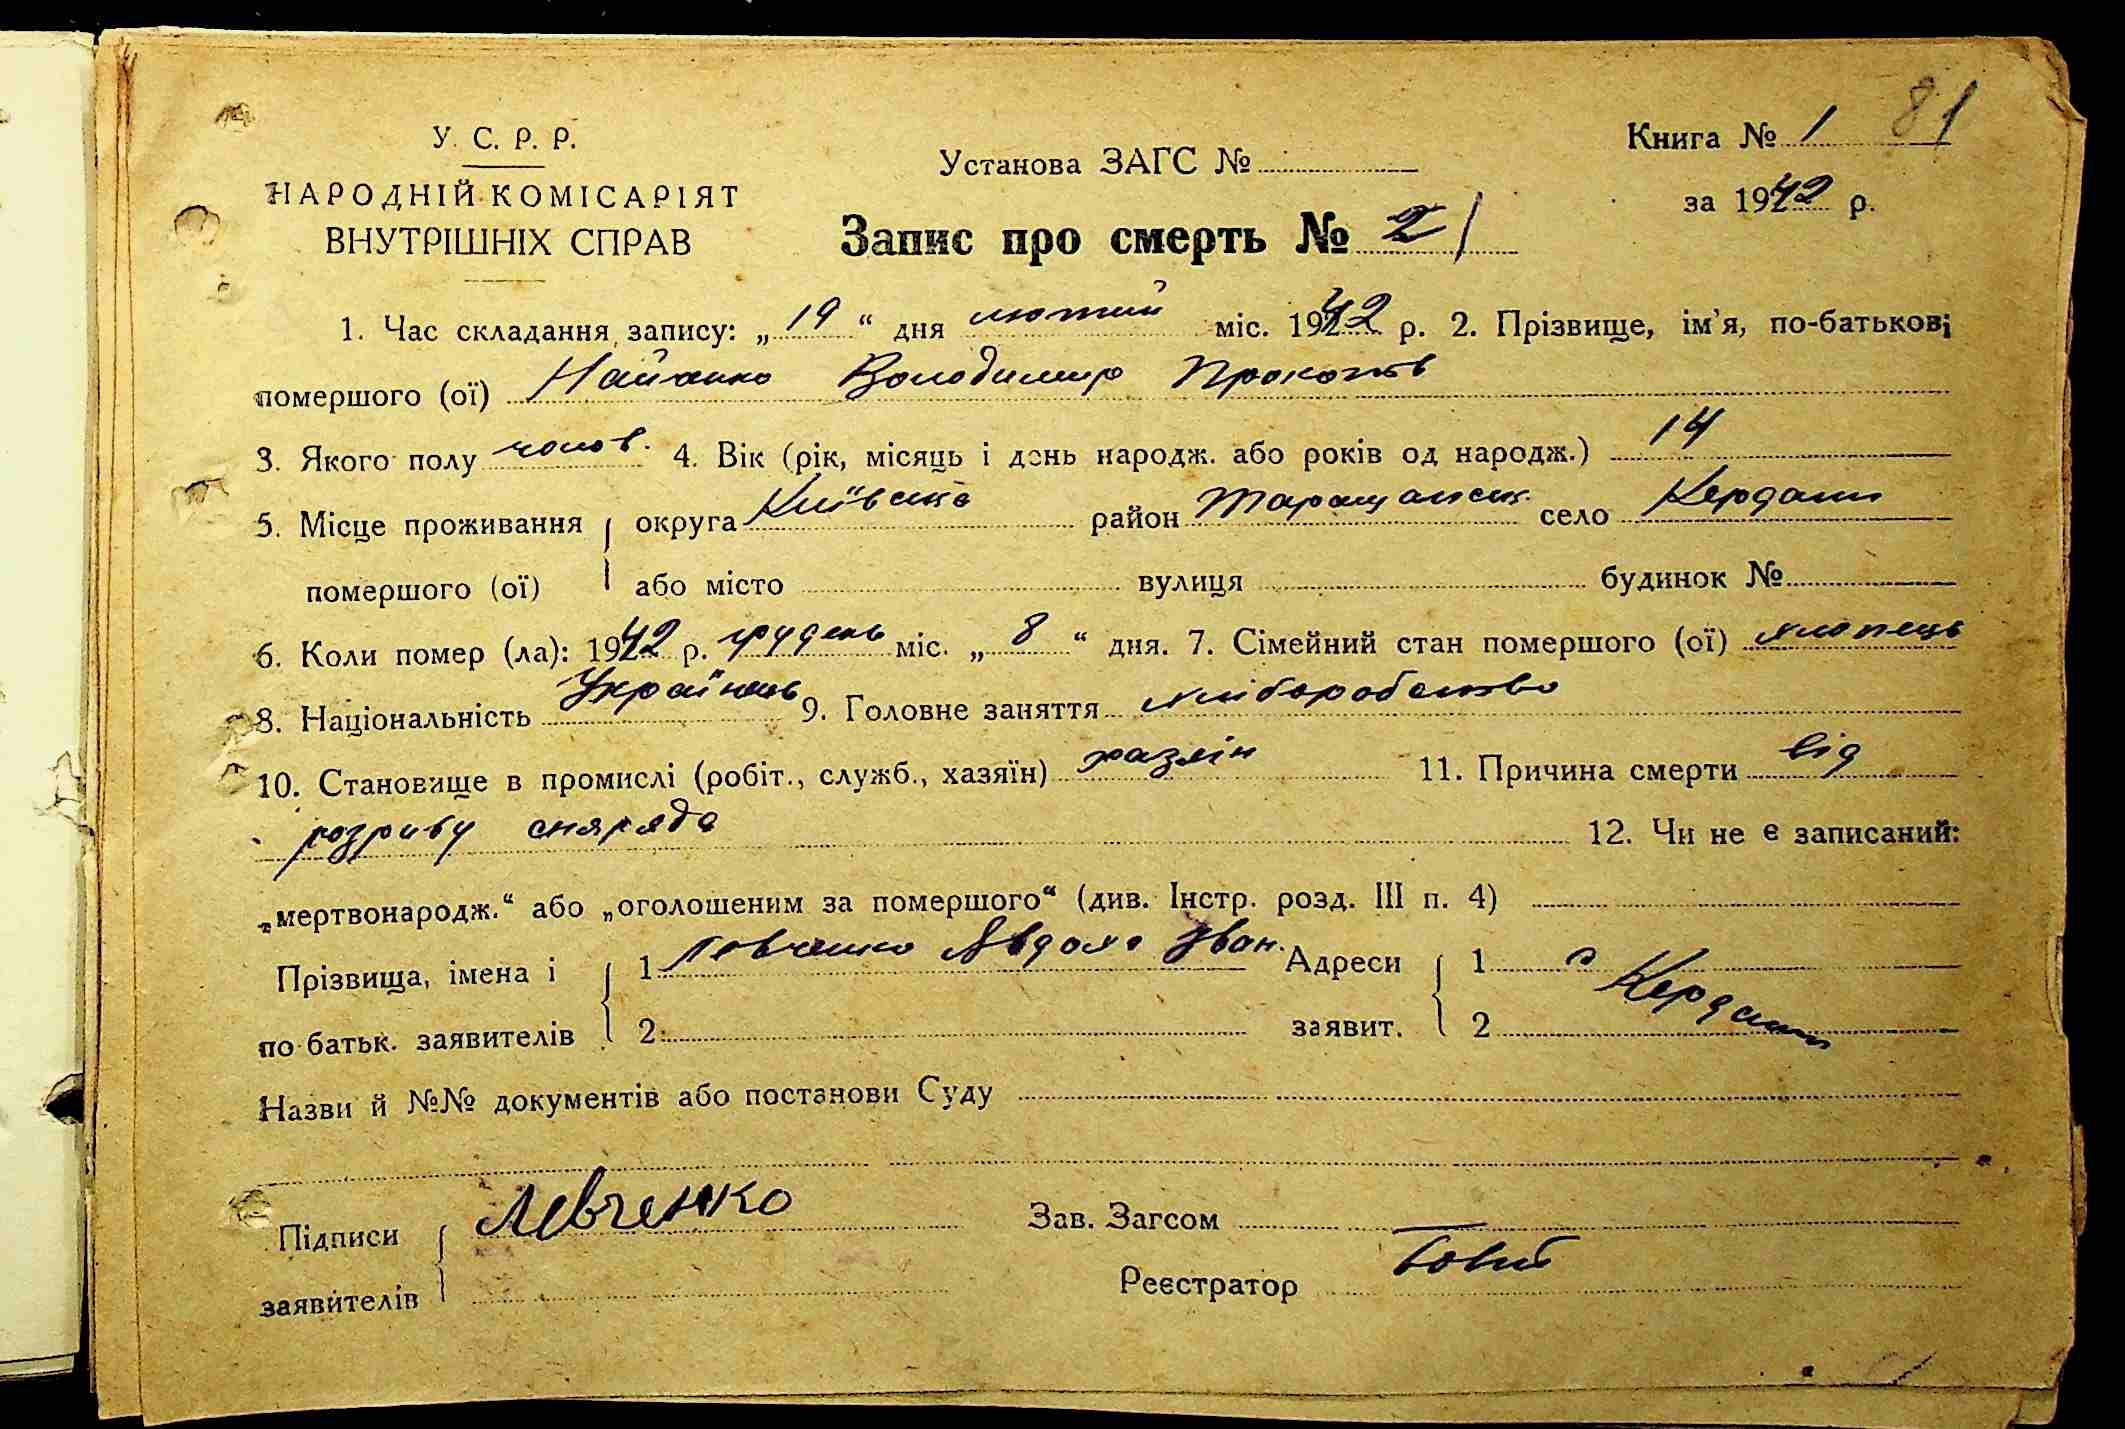 81
У. С. Р. Р.
НАРОДНІЙ КОМІСАРІЯТ
ВНУТРІШНІХ СПРАВ
Установа ЗАГС №
Книга № 1
за 1942 р.
Запис про смерть № 21
1. Час складання запису: „19“ дня лютий міс. 1942 р. 2. Прізвище, ім'я, по-батькові
помершого (ої) Володимир Прокопів
3. Якого полу чолов. 4. Вік (рік, місяць і день народж. або років од народж.) 14
5. Місце проживання округа Київська район Таращанськ. село Кердани
помершого (ої) або місто вулиця будинок №
6. Коли помер (ла): 1942 р. грудень міс. „8“ дня. 7. Сімейний стан помершого (ої) хлопець
8. Національність Українець 9. Головне заняття хліборобство
10. Становище в промислі (робіт., служб., хазяїн) хазяїн 11. Причина смерти від
розриву снаряда 12. Чи не є записаний:
„мертвонародж.“ або „оголошеним за помершого“ (див. Інстр. розд. III п. 4)
Прізвища, імена і 1 Левченко Явдоха Іван. Адреси 1 с Кердани
по батьк. заявителів 2 заявит. 2
Назви й №№ документів або постанови Суду
Підписи Левченко Зав. Загсом
заявителів Реєстратор